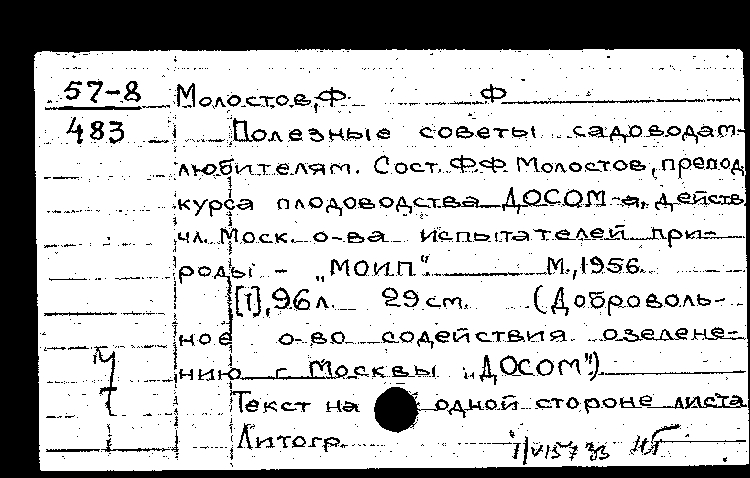 57-8 Молостов, Ф Ф
483 Полезные советы садоводам-
любителям. Сост. Ф.Ф. Молостов, препод.
курса плодоводства ДОСОМ-а, действ.
чл. Моск. о-ва испытателей при-
роды - „МОИП". М., 1956.
[1], 96 л. 29 см. (Доброволь-
ное о-во содействия озелене-
нию г. Москвы „ДОСОМ")
Текст на одной стороне листа
Литогр.